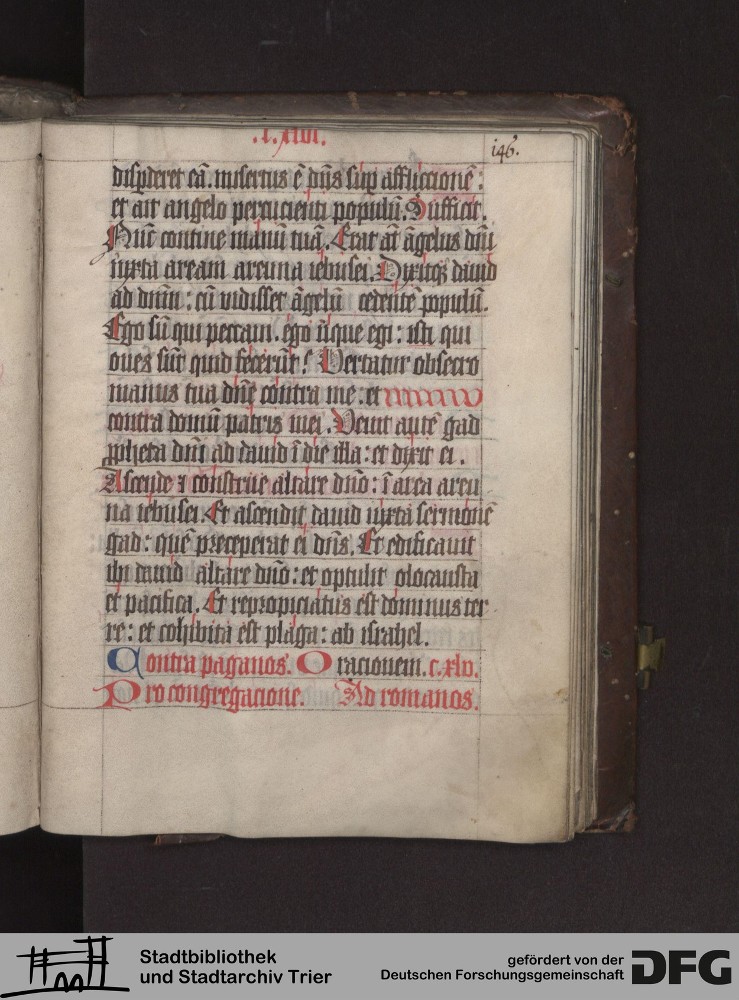 146.
disꝑderet eā. misertus ē dn̄s suꝑ afflictionē:
et ait angelo percucienti populū. Sufficit.
Nūc contine manū tuā. Erat aūt āgelus dn̄i
iuxta aream areuna iebusei. Dixitqꝫ dauid
ad dn̄m: cū vidisset āgelū cedētē populū.
Ego sū qui peccaui. ego iīque egi: isti qui
oues sūt quid fecerūt? Vertatur obsecro
manus tua dn̄e contra me: et
contra domū patris mei. Venit autē gad
ꝓpheta dn̄i ad dauid ī die illa: et dixit ei.
Ascende ⁊ construe altare dn̄o: ī area areu
na iebusei. Et ascendit dauid iuxta sermonē
gad: quē preceperat ei dn̄s. Et edificauit
ibi dauid altare dn̄o: et optulit olocausta
et pacifica. Et repropiciatus est dominus ter
re: et cohibita est plaga: ab israhel.
Contra paganos. Oracionem. c. xlv.
Pro congregacione. Ad romanos.
Stadtbibliothek
und Stadtarchiv Trier
gefördert von der
Deutschen Forschungsgemeinschaft
DFG